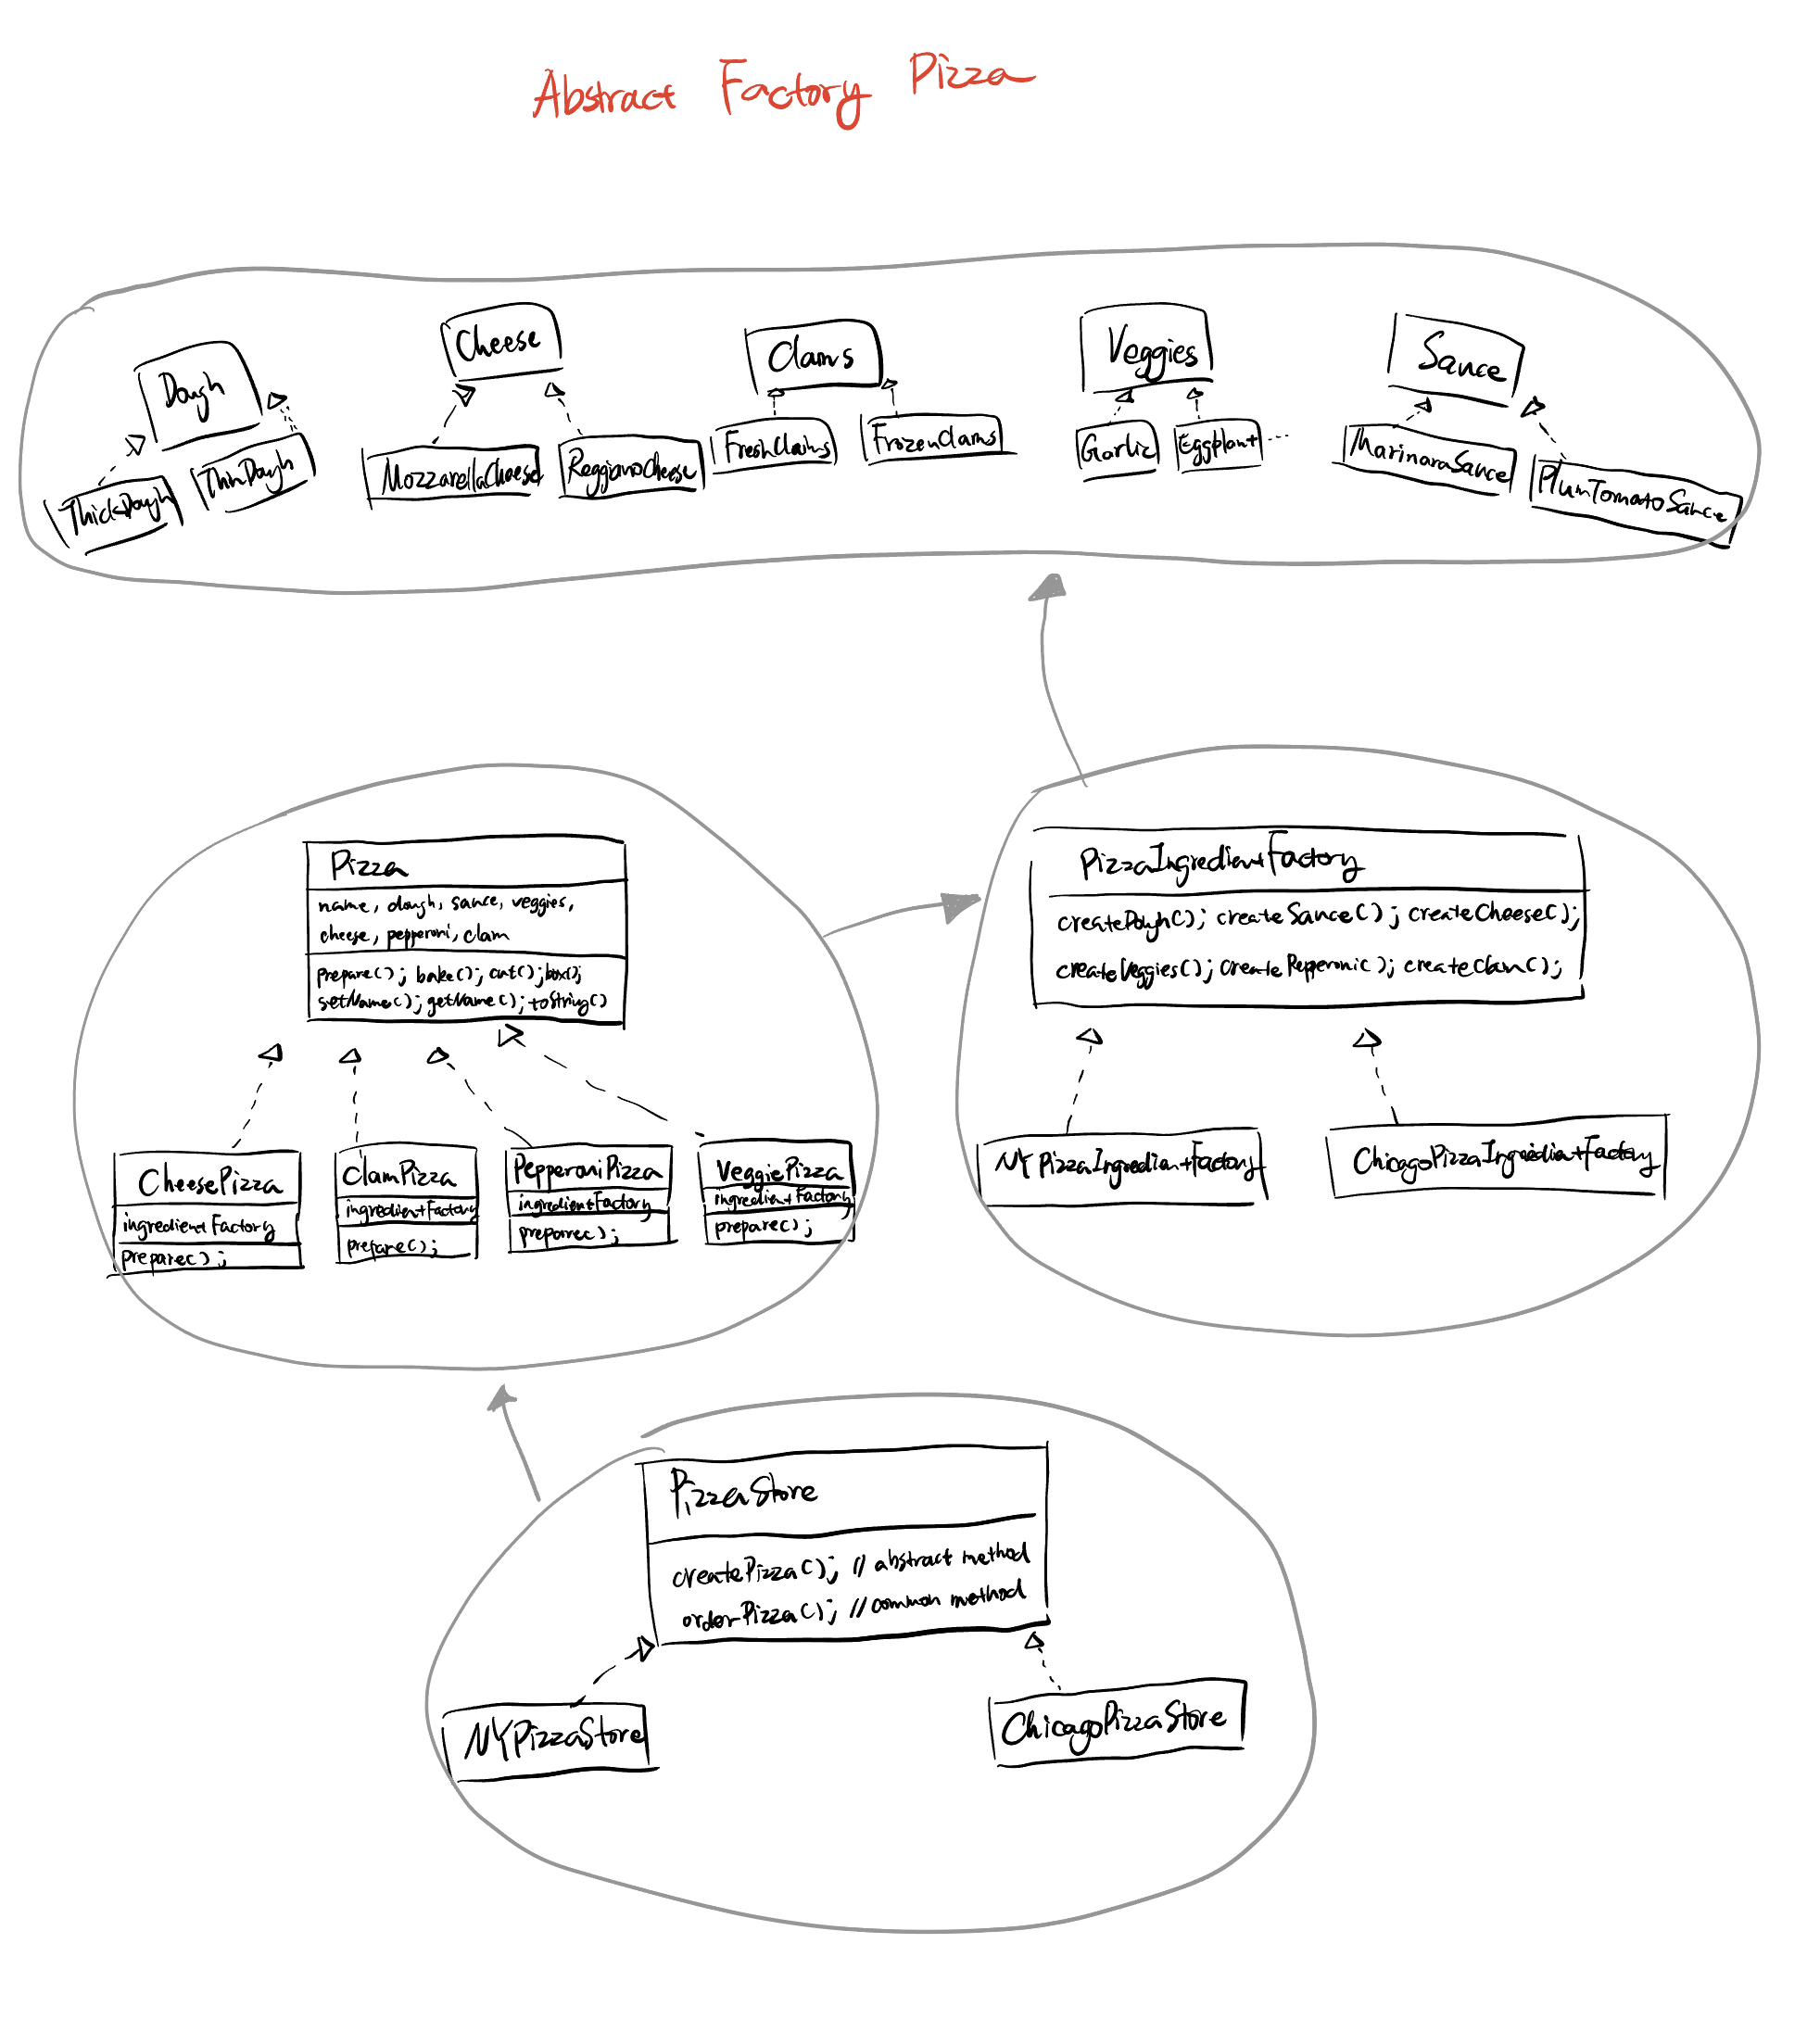 Abstract Factory Pizza
Dough
Cheese
Clams
Veggies
Sauce
ThickDough
ThinDough
MozzarellaCheese
ReggianoCheese
FreshClams
FrozenClams
Garlic
Eggplant ...
MarinaraSauce
PlumTomatoSauce
Pizza
name, dough, sauce, veggies,
cheese, pepperoni, clam
prepare(); bake(); cut(); box();
setName(); getName(); toString()
CheesePizza
ingredientFactory
prepare();
ClamPizza
ingredientFactory
prepare();
PepperoniPizza
ingredientFactory
prepare();
VeggiePizza
ingredientFactory
prepare();
PizzaIngredientFactory
createDough(); createSauce(); createCheese();
createVeggies(); createPepperoni(); createClam();
NYPizzaIngredientFactory
ChicagoPizzaIngredientFactory
PizzaStore
createPizza(); // abstract method
orderPizza(); // common method
NYPizzaStore
ChicagoPizzaStore